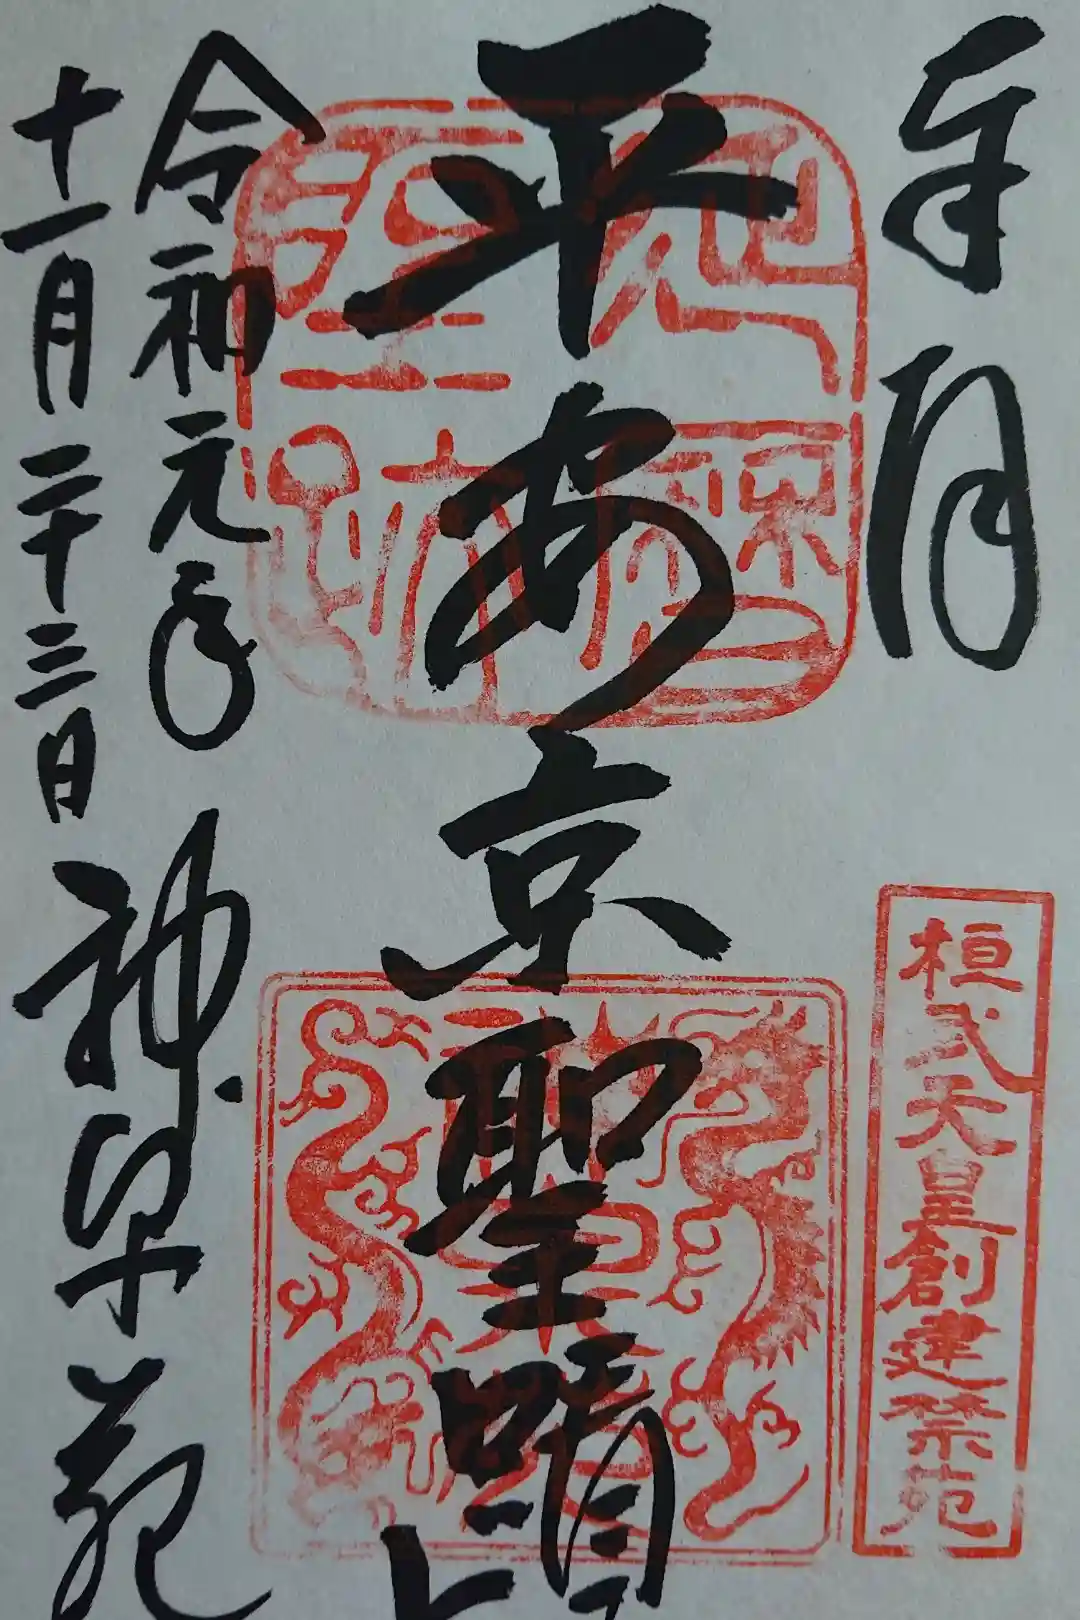 桓武天皇創建禁苑
平安京聖蹟
令和元年
十一月二十三日
神泉苑